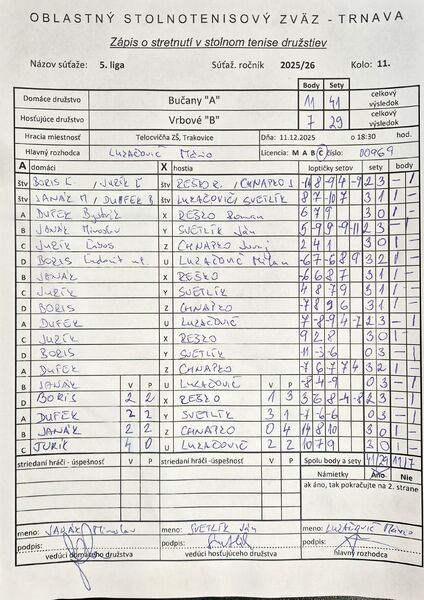 OBLASTNÝ STOLNOTENISOVÝ ZVÄZ - TRNAVA
Zápis o stretnutí v stolnom tenise družstiev
Názov súťaže: 5. liga Súťaž. ročník 2025/26 Kolo: 11.
Body Sety
Domáce družstvo Bučany "A" 11 41 celkový výsledok
Hosťujúce družstvo Vrbové "B" 7 29 celkový výsledok
Hracia miestnosť Telocvičňa ZŠ, Trakovice Dňa: 11.12.2025 o 18:30 hod.
Hlavný rozhodca Lukačovič Mário Licencia: M A B C číslo: 00969
A domáci X hostia loptičky setov sety body
štv BORIS Ľ / JURÍK Ľ štv REŠKO R. / CHNAPKO J 2 3 - 1
štv JANÁK M / DUFFEK B štv LUKAČOVIČ / SVETLÍK 8 7 -10 7 3 1 1 -
A DUFEK X REŠKO Roman 6 7 9 3 0 1 -
B JANÁK Miroslav Y SVETLÍK Ján 5 -9 9 -9 -11 2 3 - 1
C JURÍK Ľubos Z CHNAPKO Juraj 2 4 1 3 0 1 -
D BORIS Ľudovít U LUKAČOVIČ Milan -6 7 -6 8 9 3 2 1 -
B JANÁK X REŠKO 3 1 1 -
C JURÍK Y SVETLÍK 4 8 7 9 3 1 1 -
D BORIS Z CHNAPKO 3 1 1 -
A DUFEK U LUKAČOVIČ 7 -8 -9 4 -7 2 3 - 1
C JURÍK X REŠKO 9 2 8 3 0 1 -
D BORIS Y SVETLÍK -11 -3 -6 0 3 - 1
A DUFEK Z CHNAPKO 3 2 1 -
B JANÁK V P U LUKAČOVIČ V P -8 -4 -9 0 3 - 1
D BORIS 2 2 X REŠKO 1 3 3 6 -8 -4 -8 2 3 - 1
A DUFEK 2 2 Y SVETLÍK 3 1 -7 -6 -6 0 3 - 1
B JANÁK 2 2 Z CHNAPKO 0 4 14 8 10 3 0 1 -
C JURÍK 4 0 U LUKAČOVIČ 2 2 10 7 9 3 0 1 -
striedaní hráči - úspešnosť V P striedaní hráči - úspešnosť V P Spolu body a sety 41 29 11 7
Námietky Áno Nie
ak áno, tak pokračujte na 2. strane
meno: JANÁK Miroslav meno: SVETLÍK Ján meno: LUKAČOVIČ Mário
podpis: podpis: podpis:
vedúci domáceho družstva vedúci hosťujúceho družstva hlavný rozhodca